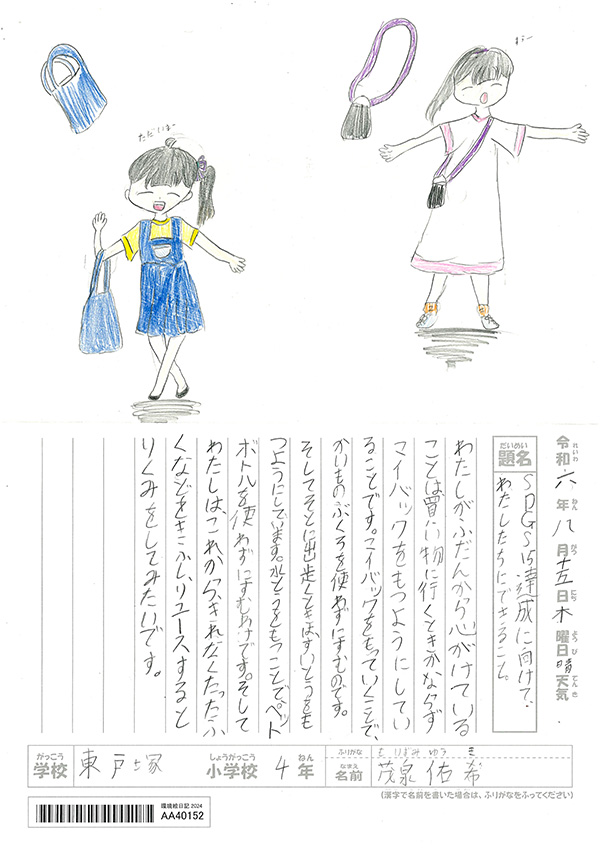 ただいまー
令和六年八月十五日木曜日晴天気
題名
SDGs15達成に向けて、
わたしたちにできること。
わたしがふだんから心がけている
ことは買い物に行くときかならず
マイバックをもつようにしてい
ることです。マイバックをもっていくことで、
かいものぶくろを使わずにすむのです。
そしてそとに出歩くときはすいとうをも
つようにしています。水とうをもつことでペット
ボトルを使わずにすむわけです。そして
わたしは、これから、きれなくなったふ
くなどをきふし、リユースすると
りくみをしてみたいです。
学校 東戸塚 小学校 4年 名前 茂泉 佑希
(漢字で名前を書いた場合は、ふりがなをふってください)
環境絵日記 2024
AA40152